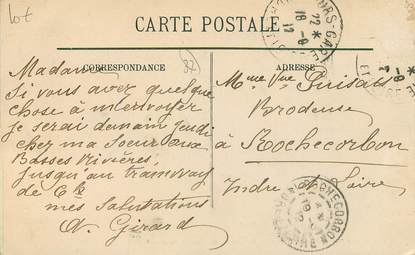 lot
CARTE POSTALE
CORRESPONDANCE
ADRESSE
37
Madame
Si vous avez quelque
chose à m'envoyer
je serai demain jeudi
chez ma Soeur aux
Basses Rivières,
jusqu'au tramway
de 6h
mes Salutations
A. Girard
Mme Vve Puisais
Brodeuse
à Rochecorbon
Indre et Loire
TOURS-GARE